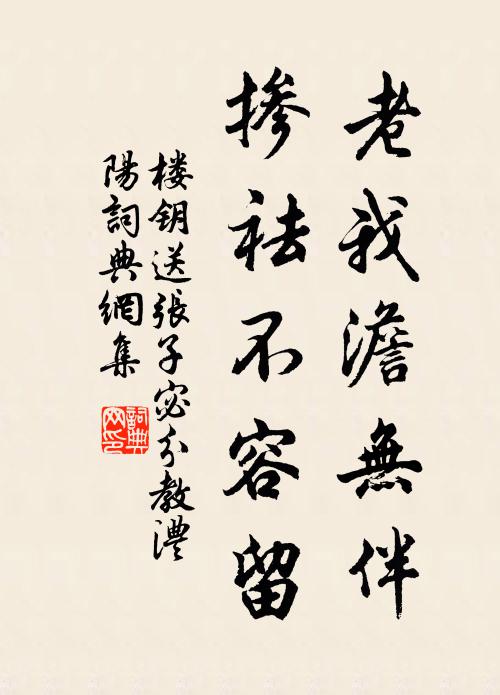 老我澹無伴
掺袪不容留
楼钥送張子宓分教澧
陽詞典網集
詞典
网印